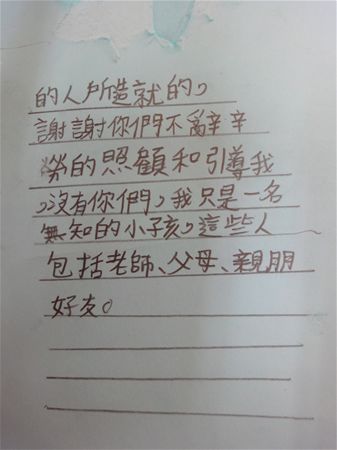 的人所造就的，
謝謝你們不辭辛
勞的照顧和引導我
。沒有你們，我只是一名
無知的小子孩。這些人
包括老師、父母、親朋
好友。